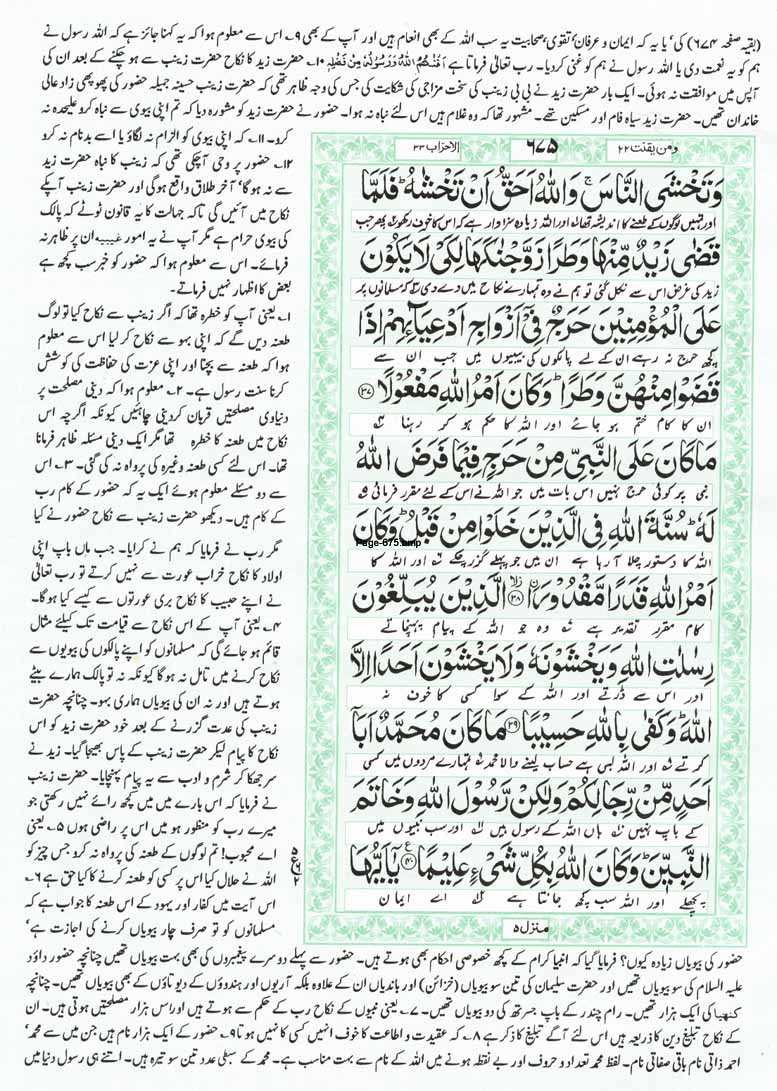 (بقیہ صفحہ ۶۷۴) کی‘ یا یہ کہ ایمان و عرفان‘ تقویٰ‘ صحابیت یہ سب اللہ کے بھی انعام ہیں اور آپ کے بھی ۹۔ اس سے معلوم ہوا کہ یہ کہنا جائز ہے کہ اللہ رسول نے
ہم کو یہ نعمت دی یا اللہ رسول نے ہم کو غنی کردیا۔ رب تعالیٰ فرماتا ہے اَغْنٰهُمُ اللّٰهُ وَرَسُوْلُهٗ مِنْ فَضْلِهٖ ۱۰۔ حضرت زید کا نکاح حضرت زینب سے ہو چکنے کے بعد ان کی
آپس میں موافقت نہ ہوئی۔ ایک بار حضرت زید نے بی بی زینب کی سخت مزاجی کی شکایت کی جس کی وجہ ظاہر تھی کہ حضرت زینب حسینہ جمیلہ حضور کی پھوپھی زاد عالی
خاندان تھیں۔ حضرت زید سیاہ فام اور مسکین تھے۔ مشہور تھا کہ وہ غلام ہیں اس لئے نباہ نہ ہوا۔ حضور نے حضرت زید کو مشورہ دیا کہ تم اپنی بیوی سے نباہ کرو علیحدہ نہ
کرو۔ ۱۱۔ کہ اپنی بیوی کو الزام نہ لگاؤ یا اسے بدنام نہ کرو
۱۲۔ حضور پر وحی آچکی تھی کہ زینب کا نباہ حضرت زید
سے نہ ہو گا‘ آخر طلاق واقع ہوگی اور حضرت زینب آپکے
نکاح میں آئیں گی تاکہ جہالت کا یہ قانون ٹوٹے کہ پالک
کی بیوی حرام ہے مگر آپ نے یہ امور غیبیہ ان پر ظاہر نہ
فرمائے۔ اس سے معلوم ہوا کہ حضور کو خبر سب کچھ ہے
بعض کا اظہار نہیں فرماتے۔
۱۔ یعنی آپ کو خطرہ تھا کہ اگر زینب سے نکاح کیا تو لوگ
طعنہ دیں گے کہ اپنی بہو سے نکاح کر لیا اس سے معلوم
ہوا کہ طعنہ سے بچنا اور اپنی عزت کی حفاظت کی کوشش
کرنا سنت رسول ہے۔ ۲۔ معلوم ہوا کہ دینی مصلحت پر
دنیاوی مصلحتیں قربان کردینی چاہئیں کیونکہ اگرچہ اس
نکاح میں طعنہ کا خطرہ تھا مگر ایک دینی مسئلہ ظاہر فرمانا
تھا۔ اس لئے کسی طعنہ وغیرہ کی پرواہ نہ کی گئی۔ ۳۔ اس
سے دو مسئلے معلوم ہوئے ایک یہ کہ حضور کے کام رب
کے کام ہیں۔ دیکھو حضرت زینب سے نکاح حضور نے کیا
مگر رب نے فرمایا کہ ہم نے کرایا۔ جب ماں باپ اپنی
اولاد کا نکاح خراب عورت سے نہیں کرتے تو رب تعالیٰ
نے اپنے حبیب کا نکاح بری عورتوں سے کیسے کیا ہوگا۔
۴۔ یعنی آپ کے اس نکاح سے قیامت تک کیلئے مثال
قائم ہو جائے گی کہ مسلمانوں کو اپنے پالکوں کی بیویوں سے
نکاح کرنے میں تامل نہ ہو گا کیونکہ نہ تو پالک ہمارے بیٹے
ہوتے ہیں اور نہ ان کی بیویاں ہماری بہو۔ چنانچہ حضرت
زینب کی عدت گزرنے کے بعد خود حضرت زید کو اس
نکاح کا پیام لیکر حضرت زینب کے پاس بھیجا گیا۔ زید نے
سر جھکا کر شرم و ادب سے یہ پیام پہنچایا۔ حضرت زینب
نے فرمایا کہ اس بارے میں میں کچھ رائے نہیں رکھتی جو
میرے رب کو منظور ہو میں اس پر راضی ہوں ۵۔ یعنی
اے محبوب! تم لوگوں کے طعنہ کی پرواہ نہ کرو جس چیز کو
اللہ نے حلال کیا اس پر کسی کو طعنہ کرنے کا کیا حق ہے ۶۔
اس آیت میں کفار اور یہود کے اس طعنہ کا جواب ہے کہ
مسلمانوں کو تو صرف چار بیویاں کرنے کی اجازت ہے‘
ومن یقنت ۲۲
۶۷۵
الاحزاب ۳۳
وَتَخْشَی النَّاسَ ۚ وَاللّٰهُ اَحَقُّ اَنْ تَخْشٰهُ ؕ فَلَمَّا
اور تمہیں لوگوں کے طعنے کا اندیشہ تھا اور اللہ زیادہ سزاوار ہے کہ اس کا خوف رکھو پھر جب
قَضٰی زَیْدٌ مِّنْهَا وَطَرًا زَوَّجْنٰكَهَا لِكَیْ لَا یَكُوْنَ
زید کی غرض اس سے نکل گئی تو ہم نے وہ تمہارے نکاح میں دے دی کہ مسلمانوں پر
عَلَی الْمُؤْمِنِیْنَ حَرَجٌ فِیْۤ اَزْوَاجِ اَدْعِیَآئِهِمْ اِذَا
کچھ حرج نہ رہے ان کے لے پالکوں کی بیبیوں میں جب ان سے
قَضَوْا مِنْهُنَّ وَطَرًا ؕ وَكَانَ اَمْرُ اللّٰهِ مَفْعُوْلًا ﴿۳۷﴾
ان کا کام ختم ہو جائے اور اللہ کا حکم ہو کر رہنا
مَا كَانَ عَلَی النَّبِیِّ مِنْ حَرَجٍ فِیْمَا فَرَضَ اللّٰهُ
نبی پر کوئی حرج نہیں اس بات میں جو اللہ نے اس کے لئے مقرر فرمائی
لَهٗ ؕ سُنَّةَ اللّٰهِ فِی الَّذِیْنَ خَلَوْا مِنْ قَبْلُ ؕ وَكَانَ
Page-675.bmp
اللہ کا دستور چلا آ رہا ہے ان میں جو پہلے گزر چکے اور اللہ کا
اَمْرُ اللّٰهِ قَدَرًا مَّقْدُوْرًا ﴿۳۸﴾ الَّذِیْنَ یُبَلِّغُوْنَ
کام مقرر تقدیر ہے وہ جو اللہ کے پیام پہنچاتے
رِسٰلٰتِ اللّٰهِ وَیَخْشَوْنَهٗ وَلَا یَخْشَوْنَ اَحَدًا اِلَّا
اور اس سے ڈرتے اور اللہ کے سوا کسی کا خوف نہ
اللّٰهَ ؕ وَكَفٰی بِاللّٰهِ حَسِیْبًا ﴿۳۹﴾ مَا كَانَ مُحَمَّدٌ اَبَآ
کرتے اور اللہ بس ہے حساب لینے والا محمد تمہارے مردوں میں کسی
اَحَدٍ مِّنْ رِّجَالِكُمْ وَلٰكِنْ رَّسُوْلَ اللّٰهِ وَخَاتَمَ
کے باپ نہیں ہاں اللہ کے رسول ہیں اور سب نبیوں میں
النَّبِیّٖنَ ؕ وَكَانَ اللّٰهُ بِكُلِّ شَیْءٍ عَلِیْمًا ﴿۴۰﴾ یٰۤاَیُّهَا
پچھلے اور اللہ سب کچھ جانتا ہے اے ایمان
منزل ۵
حضور کی بیویاں زیادہ کیوں؟ فرمایا گیا کہ انبیا کرام کے کچھ خصوصی احکام بھی ہوتے ہیں۔ حضور سے پہلے دوسرے پیغمبروں کی بھی بہت بیویاں تھیں چنانچہ حضور داؤد
علیہ السلام کی سو بیویاں تھیں اور حضرت سلیمان کی تین سو بیویاں (خزائن) اور باندیاں ان کے علاوہ بلکہ آریوں اور ہندوؤں کے دیوتاؤں کے بھی بیویاں تھیں۔ چنانچہ
کنھیا کی ایک ہزار تھیں۔ رام چندر کے باپ جسرتھ کی دو بیویاں تھیں۔ ۷۔ یعنی نبیوں کے نکاح رب کے حکم سے ہوتے ہیں اور اس ہزار مصلحتیں ہوتی ہیں۔ ان
کے نکاح تبلیغ دین کا ذریعہ ہیں اس لئے آگے تبلیغ کا ذکر ہے ۸۔ کہ عقیدت و اطاعت کا خوف انہیں کسی کا نہیں ہوتا ۹۔ حضور کے ایک ہزار نام ہیں جن میں سے محمد‘
احمد ذاتی نام باقی صفاتی نام۔ لفظ محمد تعداد و حروف اور بے نقطہ ہونے میں اللہ کے نام سے بہت مناسب ہے۔ محمد کے عدد تین سو تیرہ ہیں۔ اتنے ہی رسول دنیا میں